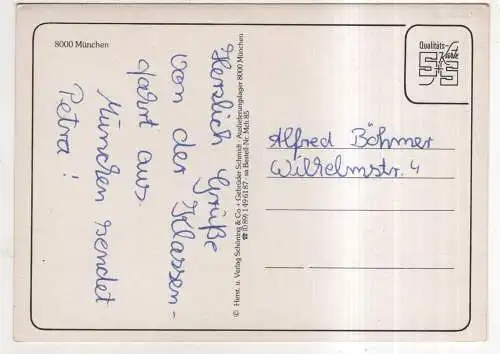 8000 München
Herzlich Grüße
von der Klassen-
fahrt aus
München sendet
Petra!
© Herst. u. Verlag Schöning & Co + Gebrüder Schmidt · Auslieferungslager 8000 München
☎ (0 89) 49 61 87 · ss Bestell-Nr. Mch 85
Qualitäts-
Karte
Alfred Böhmer
Wilhelmstr. 4